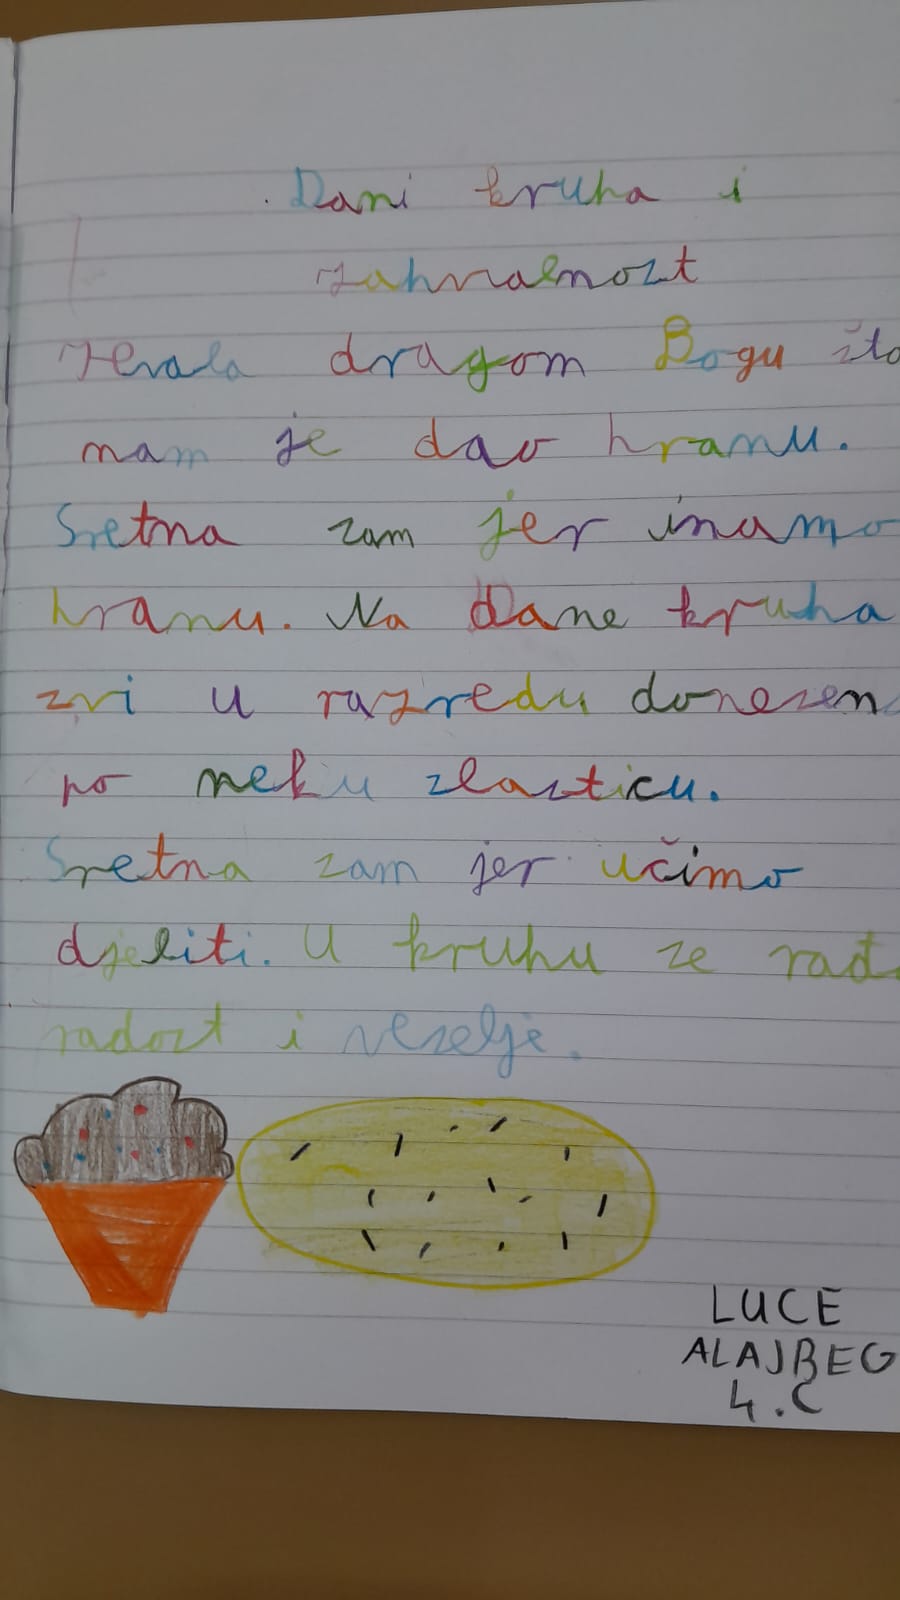 Dani kruha i
zahvalnost
Hvala dragom Bogu što
nam je dao hranu.
Sretna sam jer imamo
hranu. Na Dane kruha
svi u razredu donesem
po neku slasticu.
Sretna sam jer učimo
djeliti. U kruhu se rađa
radost i veselje.
LUCE
ALAJBEG
4.C